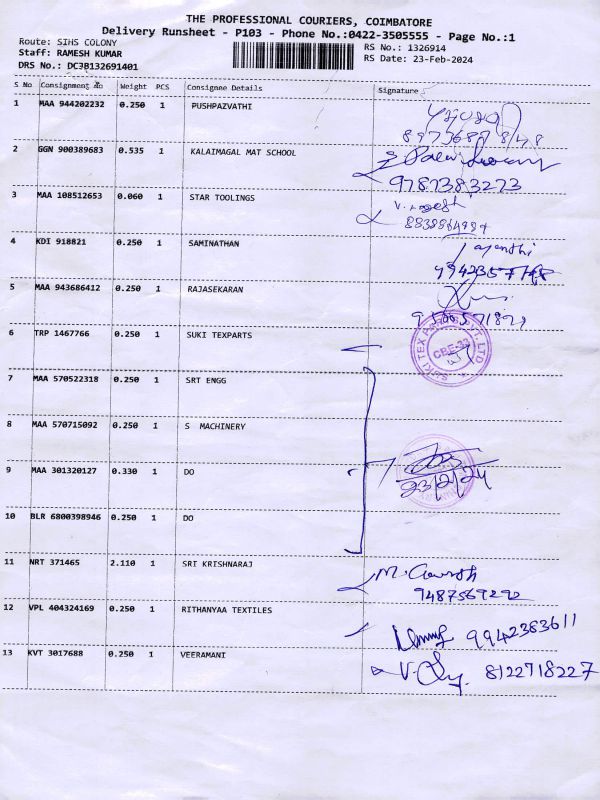 THE PROFESSIONAL COURIERS, COIMBATORE
Delivery Runsheet - P103 - Phone No.:0422-3505555 - Page No.:1
Route: SIHS COLONY
RS No.: 1326914
Staff: RAMESH KUMAR
RS Date: 23-Feb-2024
DRS No.: DC3B132691401
S No Consignment No Weight PCS Consignee Details Signature
1 MAA 944202232 0.250 1 PUSHPAZVATHI
2 GGN 900389683 0.535 1 KALAIMAGAL MAT SCHOOL
9787383273
3 MAA 108512653 0.060 1 STAR TOOLINGS
4 KDI 918821 0.250 1 SAMINATHAN
Jayanthi
5 MAA 943686412 0.250 1 RAJASEKARAN
6 TRP 1467766 0.250 1 SUKI TEXPARTS
CBE-33
7 MAA 570522318 0.250 1 SRT ENGG
8 MAA 570715092 0.250 1 S MACHINERY
9 MAA 301320127 0.330 1 DO
23/2/24
10 BLR 6800398946 0.250 1 DO
11 NRT 371465 2.110 1 SRI KRISHNARAJ
9487569292
12 VPL 404324169 0.250 1 RITHANYAA TEXTILES
9942383611
13 KVT 3017688 0.250 1 VEERAMANI
8122718227